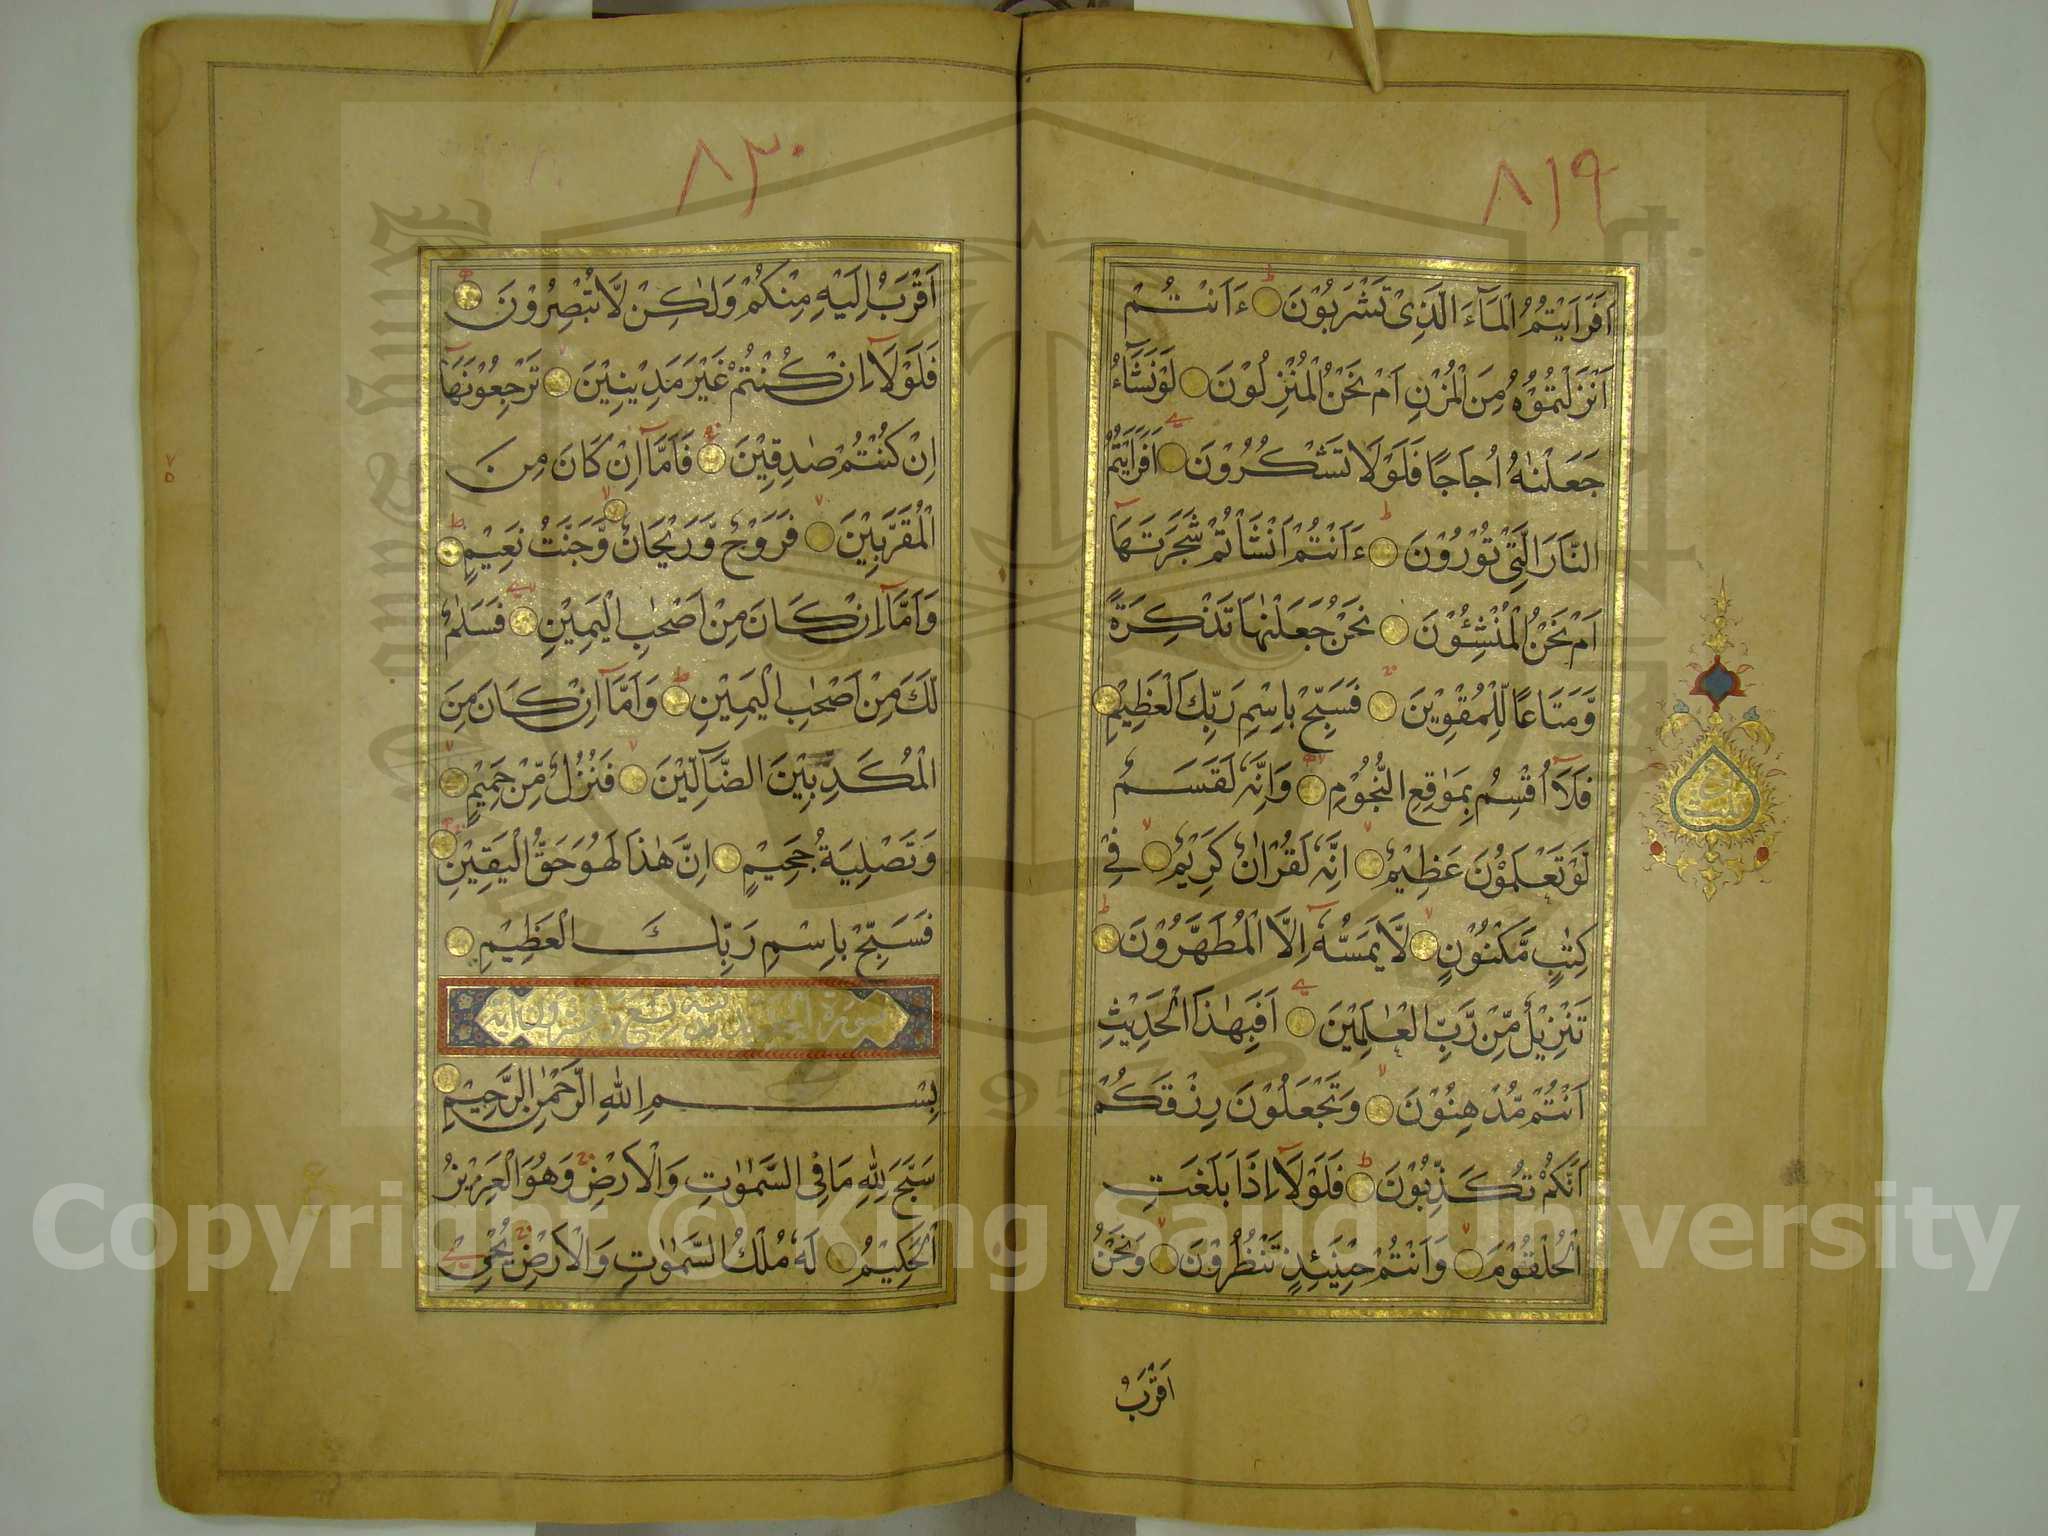 ٨١٩
اَفَرَاَيْتُمُ الْمَآءَ الَّذِىْ تَشْرَبُوْنَ ءَاَنْتُمْ
اَنْزَلْتُمُوْهُ مِنَ الْمُزْنِ اَمْ نَحْنُ الْمُنْزِلُوْنَ لَوْنَشَآءُ
جَعَلْنٰهُ اُجَاجًا فَلَوْلَا تَشْكُرُوْنَ اَفَرَاَيْتُمُ
النَّارَ الَّتِىْ تُوْرُوْنَ ءَاَنْتُمْ اَنْشَاْتُمْ شَجَرَتَهَآ
اَمْ نَحْنُ الْمُنْشِئُوْنَ نَحْنُ جَعَلْنٰهَا تَذْكِرَةً
وَّمَتَاعًا لِّلْمُقْوِيْنَ فَسَبِّحْ بِاسْمِ رَبِّكَ الْعَظِيْمِ
فَلَآ اُقْسِمُ بِمَوٰقِعِ النُّجُوْمِ وَاِنَّهٗ لَقَسَمٌ
لَوْتَعْلَمُوْنَ عَظِيْمٌ اِنَّهٗ لَقُرْاٰنٌ كَرِيْمٌ فِىْ
كِتٰبٍ مَّكْنُوْنٍ لَّا يَمَسُّهٗٓ اِلَّا الْمُطَهَّرُوْنَ
تَنْزِيْلٌ مِّنْ رَّبِّ الْعٰلَمِيْنَ اَفَبِهٰذَا الْحَدِيْثِ
اَنْتُمْ مُّدْهِنُوْنَ وَتَجْعَلُوْنَ رِزْقَكُمْ
اَنَّكُمْ تُكَذِّبُوْنَ فَلَوْلَآ اِذَا بَلَغَتِ
الْحُلْقُوْمَ وَاَنْتُمْ حِيْنَئِذٍ تَنْظُرُوْنَ وَنَحْنُ
اَقْرَبُ
٨٢٠
اَقْرَبُ اِلَيْهِ مِنْكُمْ وَلٰكِنْ لَّا تُبْصِرُوْنَ
فَلَوْلَآ اِنْ كُنْتُمْ غَيْرَ مَدِيْنِيْنَ تَرْجِعُوْنَهَآ
اِنْ كُنْتُمْ صٰدِقِيْنَ فَاَمَّآ اِنْ كَانَ مِنَ
الْمُقَرَّبِيْنَ فَرَوْحٌ وَّرَيْحَانٌ وَّجَنَّتُ نَعِيْمٍ
وَاَمَّآ اِنْ كَانَ مِنْ اَصْحٰبِ الْيَمِيْنِ فَسَلٰمٌ
لَّكَ مِنْ اَصْحٰبِ الْيَمِيْنِ وَاَمَّآ اِنْ كَانَ مِنَ
الْمُكَذِّبِيْنَ الضَّآلِّيْنَ فَنُزُلٌ مِّنْ حَمِيْمٍ
وَتَصْلِيَةُ جَحِيْمٍ اِنَّ هٰذَا لَهُوَ حَقُّ الْيَقِيْنِ
فَسَبِّحْ بِاسْمِ رَبِّكَ الْعَظِيْمِ
سورة الحديد تسع وعشرون آية
بِسْمِ اللهِ الرَّحْمٰنِ الرَّحِيْمِ
سَبَّحَ لِلّٰهِ مَا فِى السَّمٰوٰتِ وَالْاَرْضِ وَهُوَ الْعَزِيْزُ
الْحَكِيْمُ لَهٗ مُلْكُ السَّمٰوٰتِ وَالْاَرْضِ يُحْىٖ
Copyright © King Saud University